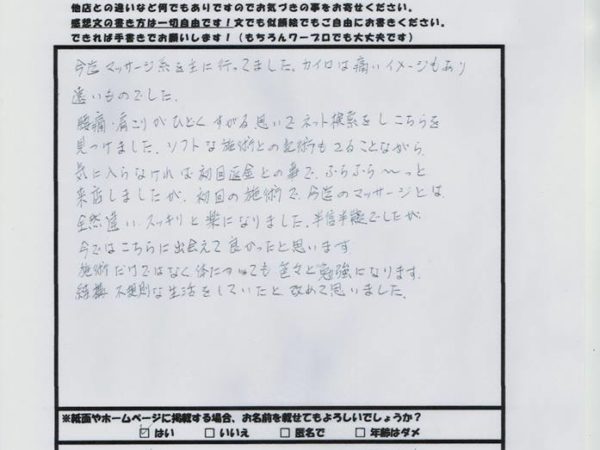 他店との違いなど何でもありですのでお気づきの事をお寄せください。
感想文の書き方は一切自由です！文でも似顔絵でもご自由にお書きください。
できれば手書きでお願いします！（もちろんワープロでも大丈夫です）
今迄マッサージ系を主に行ってました。カイロは痛いイメージもあり
遠いものでした。
腰痛・肩こりがひどく すがる思いで ネット検索をし こちらを
見つけました。ソフトな施術との記術もさることながら
気に入らなければ初回返金との事で、ぷらぷら〜っと
来店しましたが、初回の施術で、今迄のマッサージとは、
全然違い スッキリと楽になりました。半信半疑でしたが
今ではこちらに出会えて良かったと思います
施術だけではなく体についても 色々と勉強になります。
結構 不規則な生活をしていたと 改めて思いました。
※紙面やホームページに掲載する場合、お名前を載せてもよろしいでしょうか？
☑ はい □ いいえ □ 匿名で □ 年齢はダメ